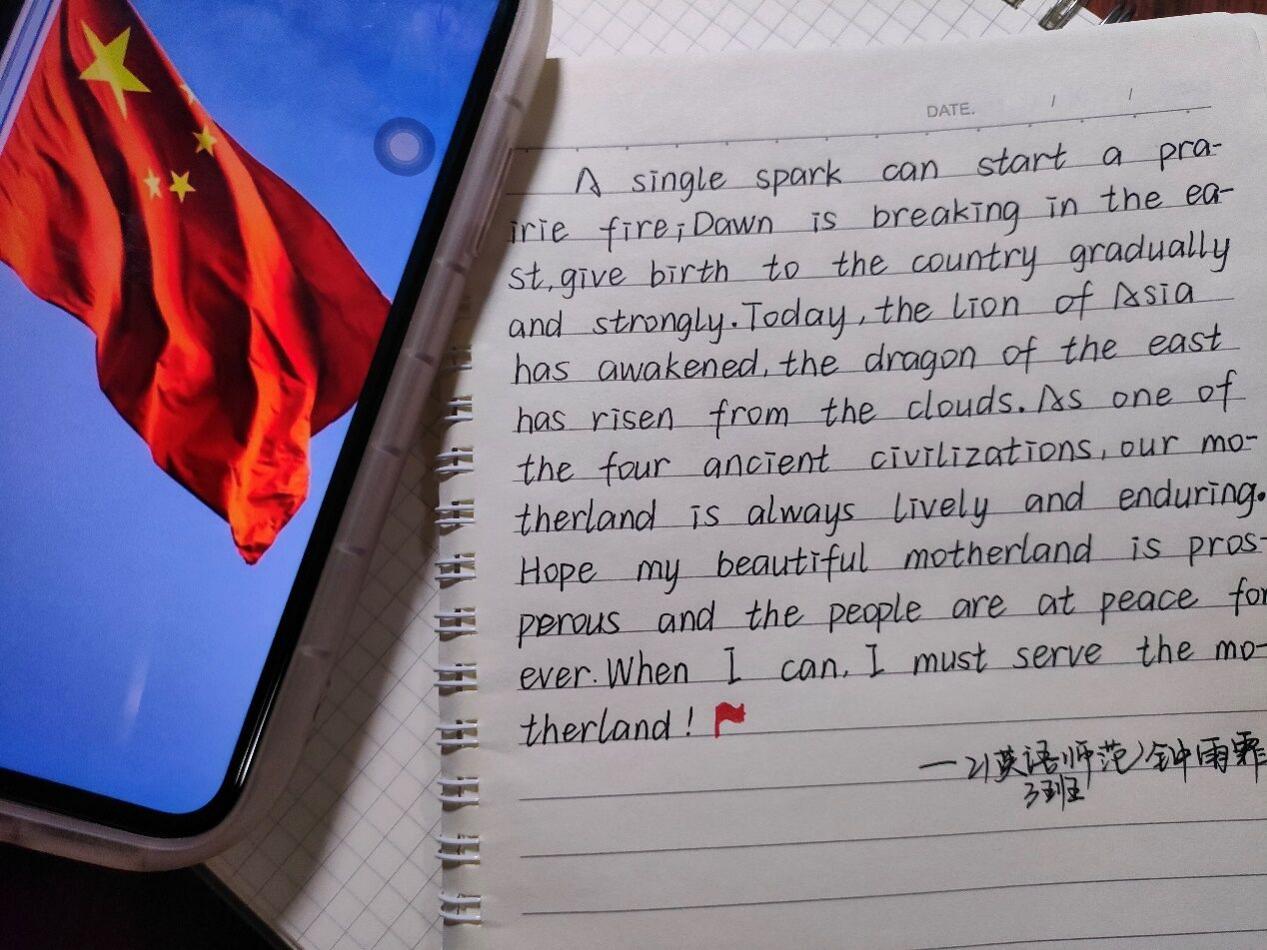 DATE. / /
A single spark can start a pra-
irie fire;Dawn is breaking in the ea-
st,give birth to the country gradually
and strongly.Today,the lion of Asia
has awakened,the dragon of the east
has risen from the clouds.As one of
the four ancient civilizations,our mo-
therland is always lively and enduring.
Hope my beautiful motherland is pros-
perous and the people are at peace for
ever.When I can,I must serve the mo-
therland!
—21英语师范 钟雨霏
3班